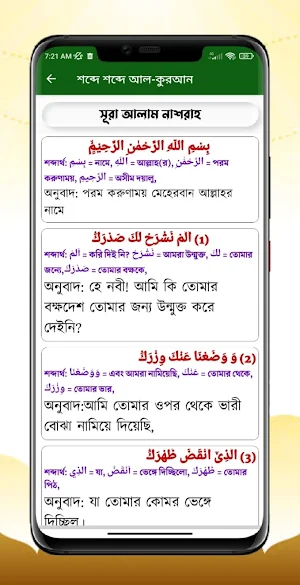 7:21 AM
শব্দে শব্দে আল-কুরআন
সূরা আলাম নাশরাহ
بِسْمِ اللهِ الرَّحْمٰنِ الرَّحِيْمِ
শব্দার্থ: بِسْمِ = নামে, اللهِ = আল্লাহ(র), الرَّحْمٰنِ = পরম
করুণাময়, الرَّحِيمِ = অসীম দয়ালু,
অনুবাদ: পরম করুণাময় মেহেরবান আল্লাহর
নামে
(1) اَلَمْ نَشْرَحْ لَكَ صَدْرَكَ
শব্দার্থ: أَلَمْ = করি নি, نَشْرَحْ = আমরা উন্মুক্ত, لَكَ = তোমার
জন্যে, صَدْرَكَ = তোমার বক্ষকে,
অনুবাদ: হে নবী! আমি কি তোমার
বক্ষদেশ তোমার জন্য উন্মুক্ত করে
দেইনি?
(2) وَ وَضَعْنَا عَنْكَ وِزْرَكَ
শব্দার্থ: وَوَضَعْنَا = এবং আমরা নামিয়েছি, عَنْكَ = তোমার থেকে,
وِزْرَكَ = তোমার ভার,
অনুবাদ:আমি তোমার ওপর থেকে ভারী
বোঝা নামিয়ে দিয়েছি,
(3) الَّذِىْ اَنْقَضَ ظَهْرَكَ
শব্দার্থ: الَّذِي = যা, أَنْقَضَ = ভেঙ্গে দিচ্ছিলো, ظَهْرَكَ = তোমার
পিঠ,
অনুবাদ: যা তোমার কোমর ভেঙ্গে
দিচ্ছিল।